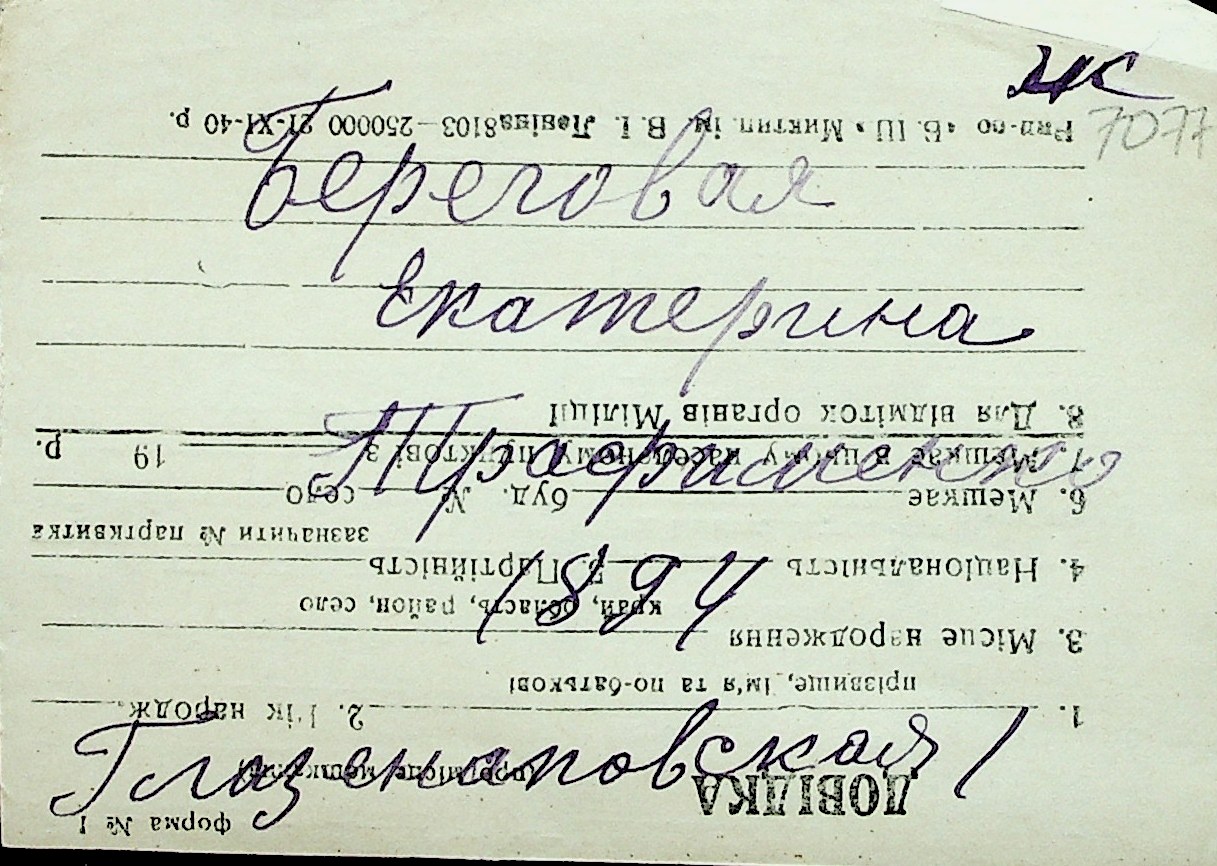 ЖК
7077
Береговая
Екатерина
Трофименко
1894
Глазенаповская 1
форма № 1
ДОВІДКА
про місце мешкання
1.
2. Рік народж.
прізвище, ім'я та по-батькові
3. Місце народження
край, область, район, село
4. Національність
5. Партійність
зазначити № партквитка
6. Мешкає
буд. №
село
7. Мешкає в цьому населеному пунктові з
19
р.
8. Для відміток органів Міліції
250000 21-XI-40 р.